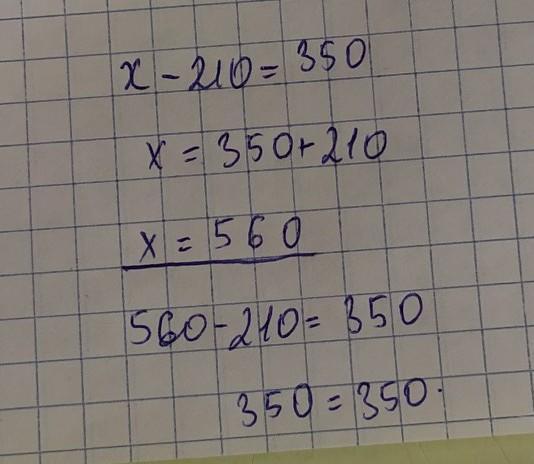 x - 210 = 350
x = 350 + 210
x = 560
560 - 210 = 350
350 = 350.